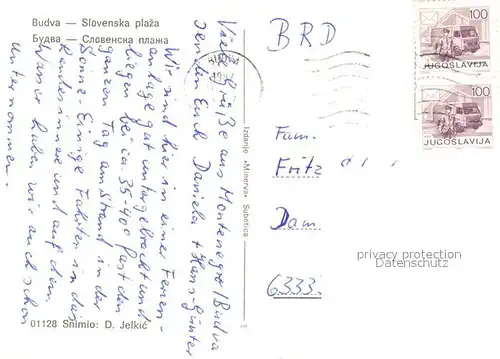 Budva — Slovenska plaža
Будва — Словенска плажа
Viele Grüße aus Montenegro/Budva
senden Euch Daniela + Hans-Günter
Wir sind hier in einer Ferien-
anlage gut untergebracht und
liegen bei ca. 35-40° fast den
ganzen Tag am Strand in der
Sonne. Einige Fahrten in das
Landesinnere und auf dem
Wasser haben wir auch schon
unternommen.
Izdanje »Minerva« Subotica
01128 Snimio: D. Jelkić
BRD
100
JUGOSLAVIJA
100
JUGOSLAVIJA
Fam.
Fritz
Dam
6333
privacy protection
Datenschutz